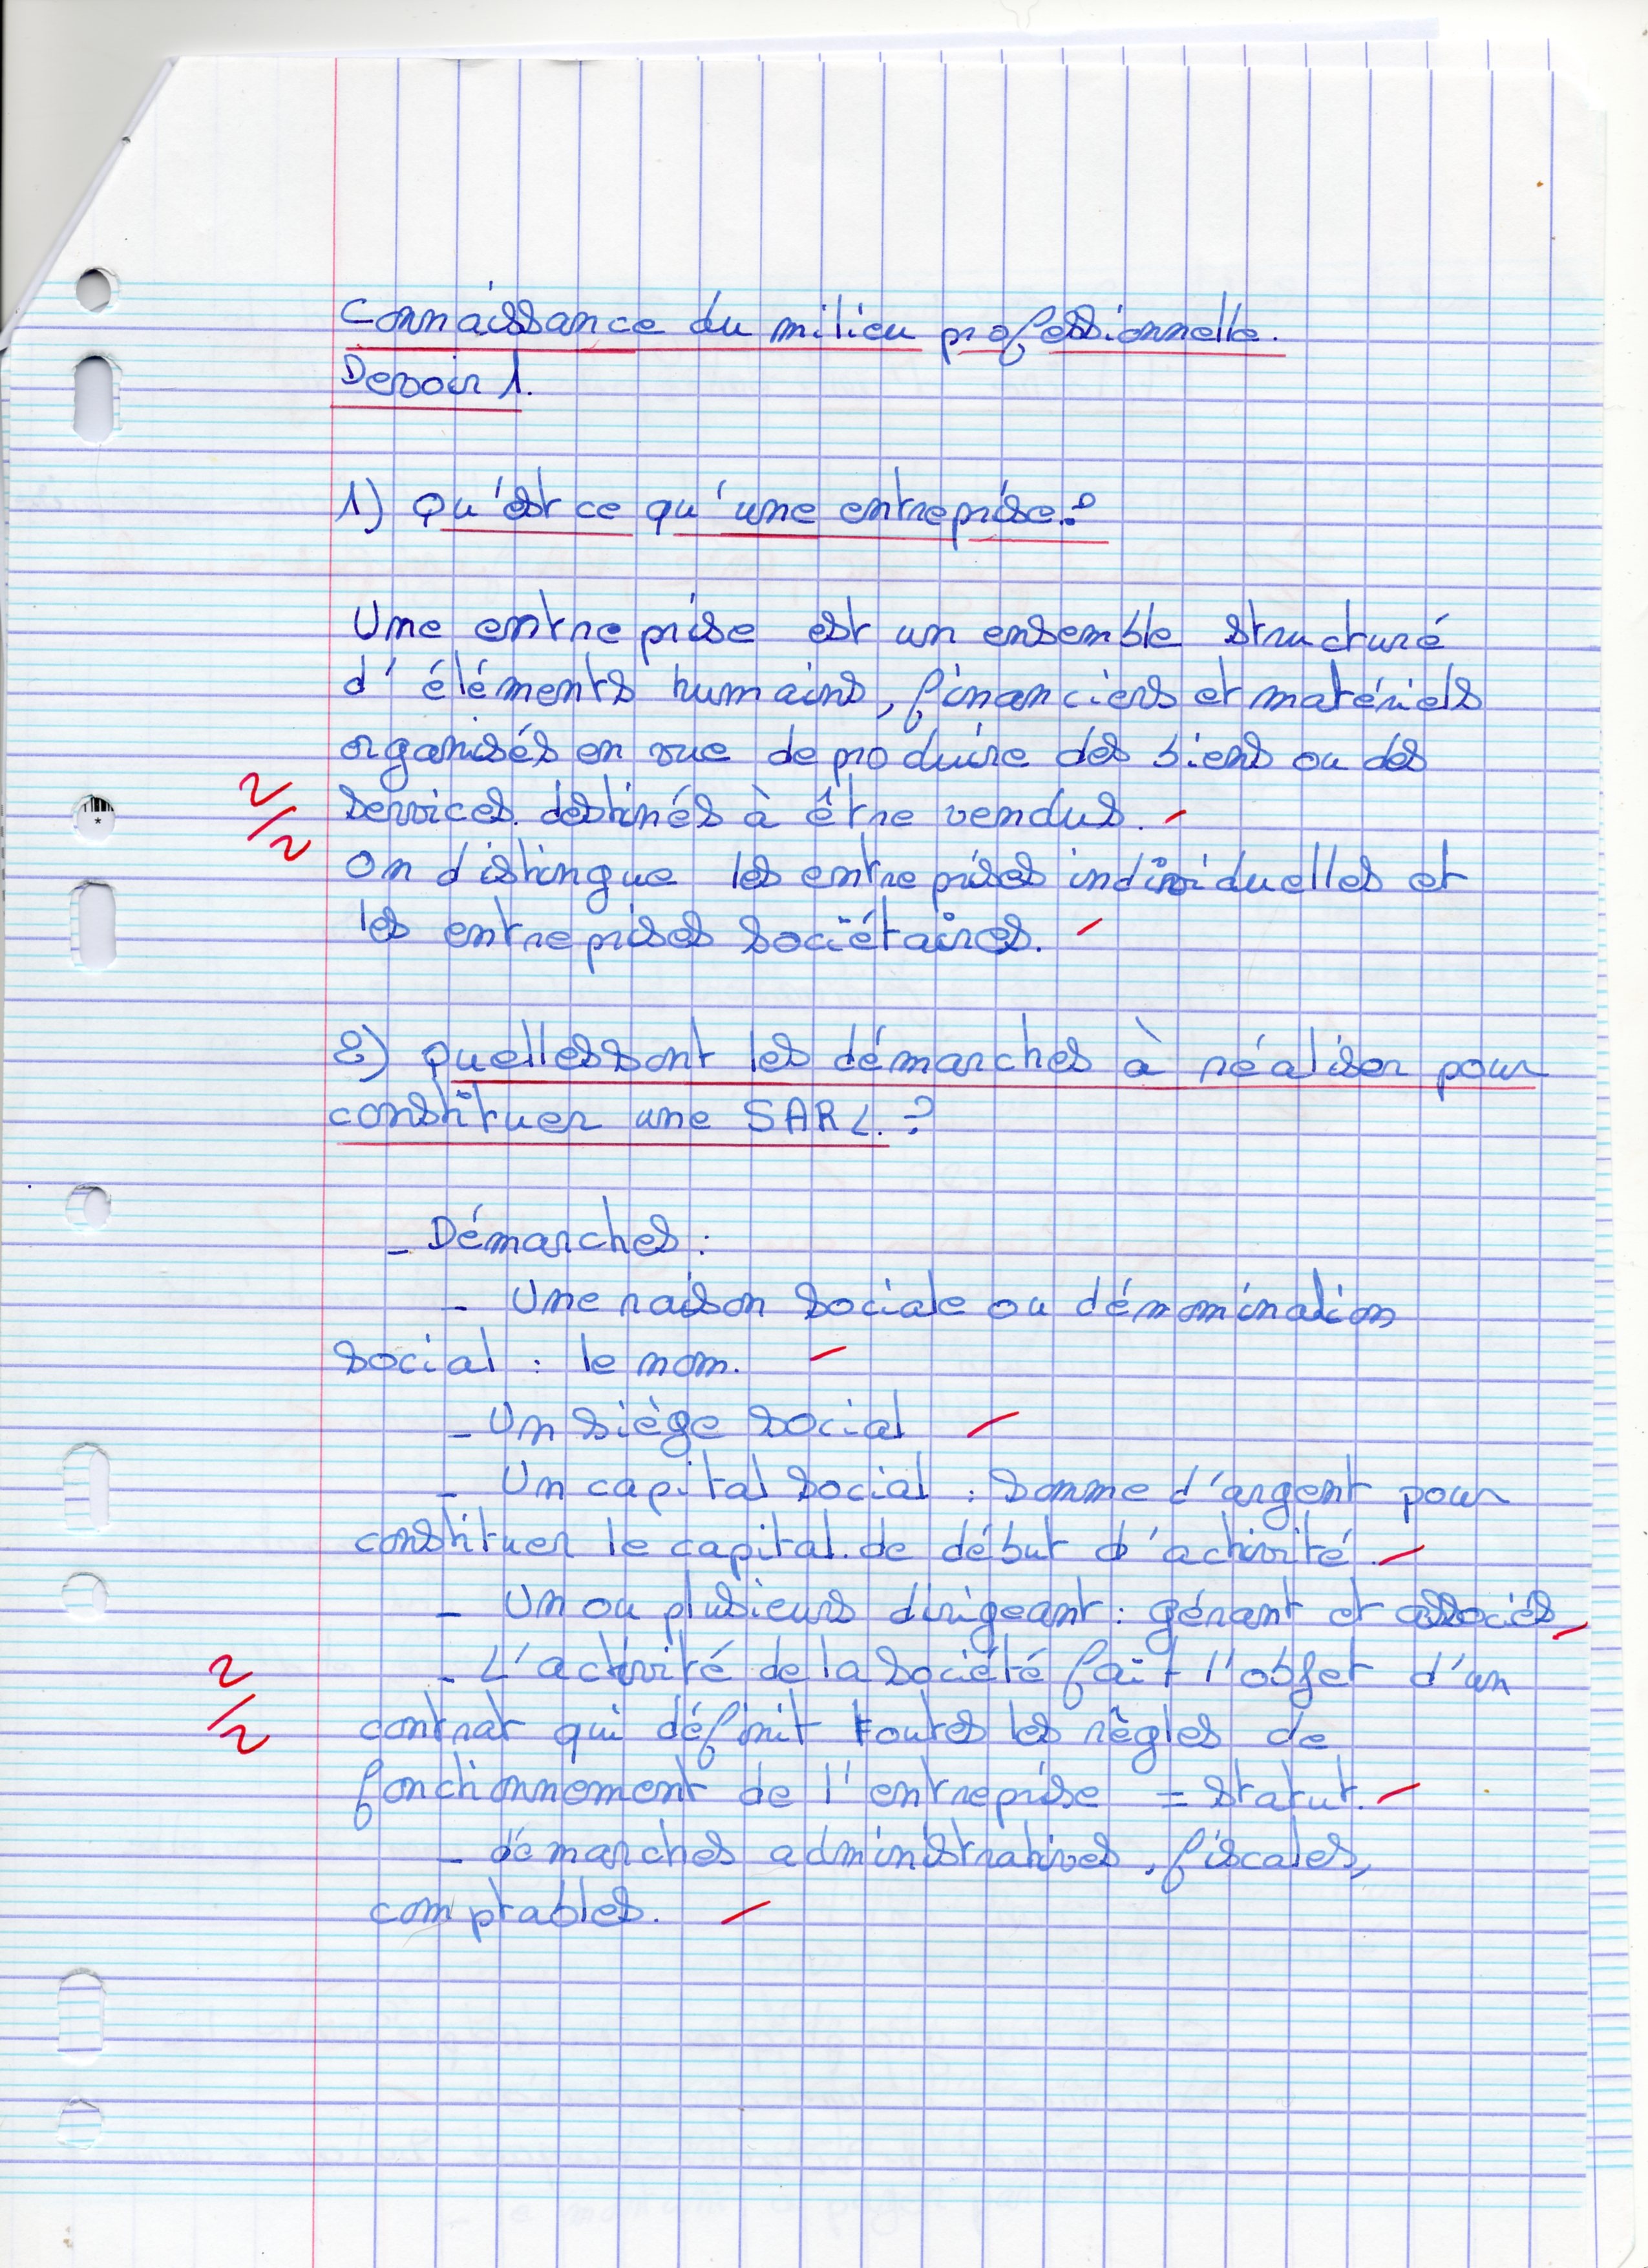 Connaissance du milieu professionnelle.
Devoir 1.
1) Qu'est ce qu'une entreprise ?
Une entreprise est un ensemble structuré
d'éléments humains, financiers et matériels
organisés en vue de produire des biens ou des
services. destinés à être vendus.
2/2
On distingue les entreprises individuelles et
les entreprises sociétaires.
2) Quelles sont les démarches à réaliser pour
constituer une SARL. ?
- Démarches :
- Une raison sociale ou dénomination
social : le nom.
- Un siège social
- Un capital social : somme d'argent pour
constituer le capital. de début d'activité.
- Un ou plusieurs dirigeant : gérant et associés
- L'activité de la société fait l'objet d'un
2/2
contrat qui définit toutes les règles de
fonctionnement de l'entreprise = statut.
- démarches administratives, fiscales,
comptables.